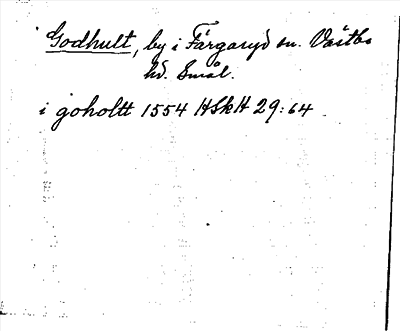 Godhult, by i Färgaryd sn. Västbo
hd. Smål.
i goholtt 1554 HSkH 29:64